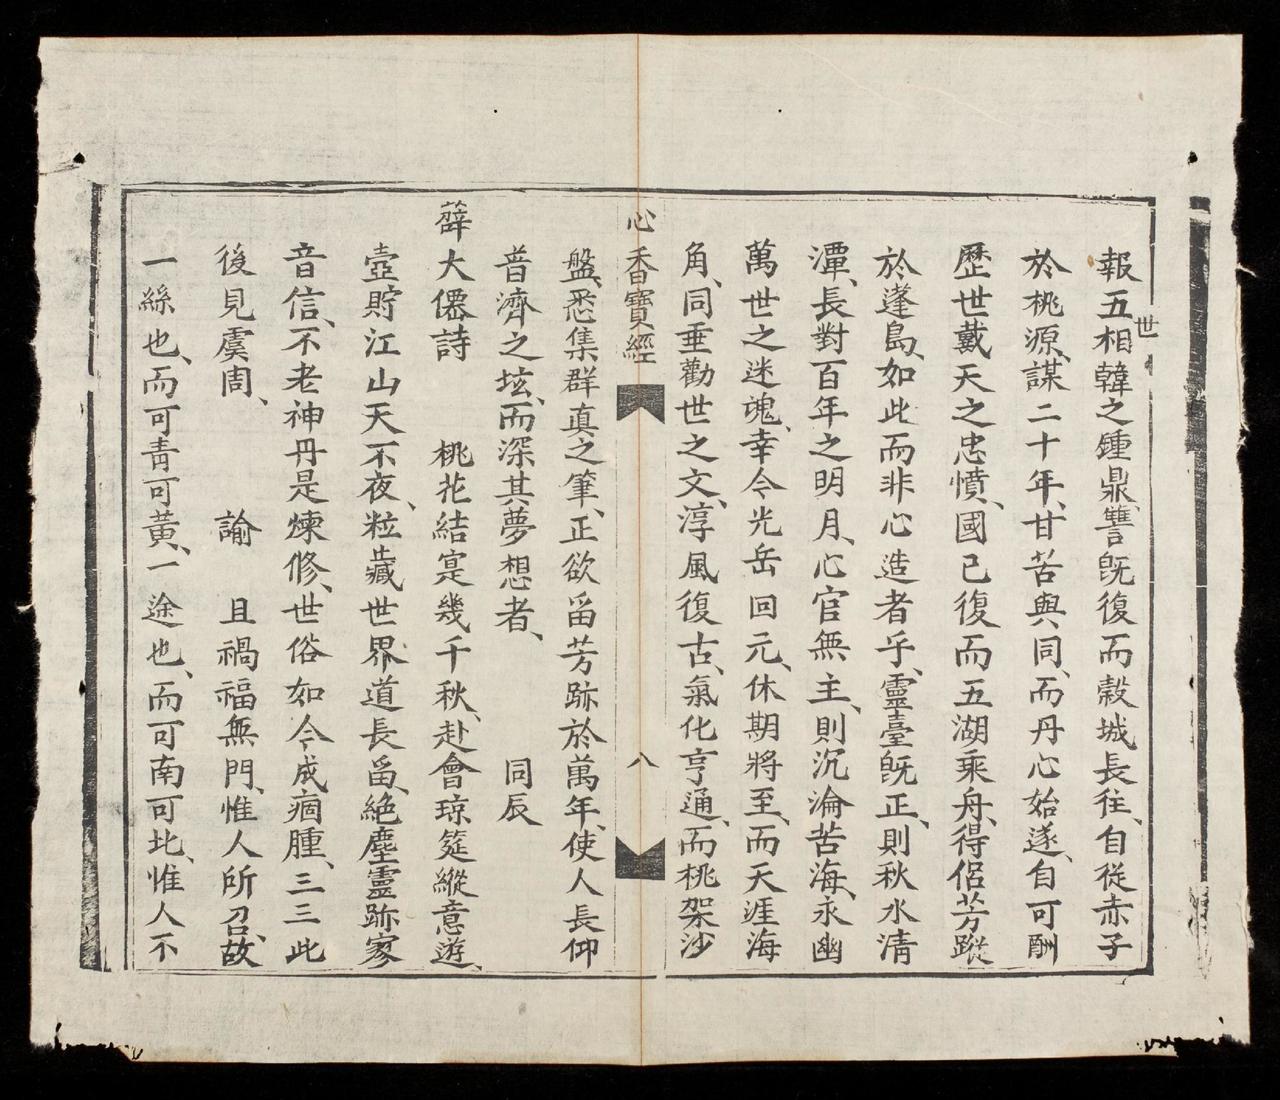 報五世相韓之鍾鼎、讐既復而穀城長往、自從赤子
於桃源、謀二十年、甘苦與同、而丹心始遂、自可酬
歷世戴天之忠憤、國已復而五湖乘舟、得侶芳蹤
於蓬島、如此而非心造者乎、靈臺既正、則秋水清
潭、長對百年之明月、心官無主、則沉淪苦海、永幽
萬世之迷魂、幸今光岳回元、休期將至、而天涯海
角、同垂勸世之文、淳風復古、氣化亨通、而桃架沙
心香寶經 八
盤、悉集群真之筆、正欲畱芳跡於萬年、使人長仰
普濟之壇、而深其夢想者、 同辰
薛大僊詩 桃花結寔幾千秋、赴會琼筵縱意遊、
壺貯江山天不夜、粒藏世界道長畱、絕塵靈跡寥
音信、不老神丹是煉修、世俗如今成痼腫、三三此
後見虞周、 諭 且禍福無門、惟人所召、故
一絲也、而可青可黃、一途也、而可南可北、惟人不